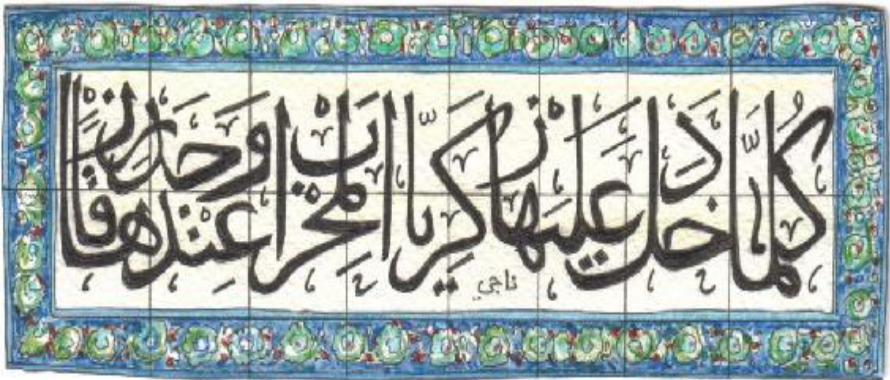 كُلَّمَا دَخَلَ عَلَيْهَا زَكَرِيَّا الْمِحْرَابَ وَجَدَ عِنْدَهَا رِزْقًا
ناجي